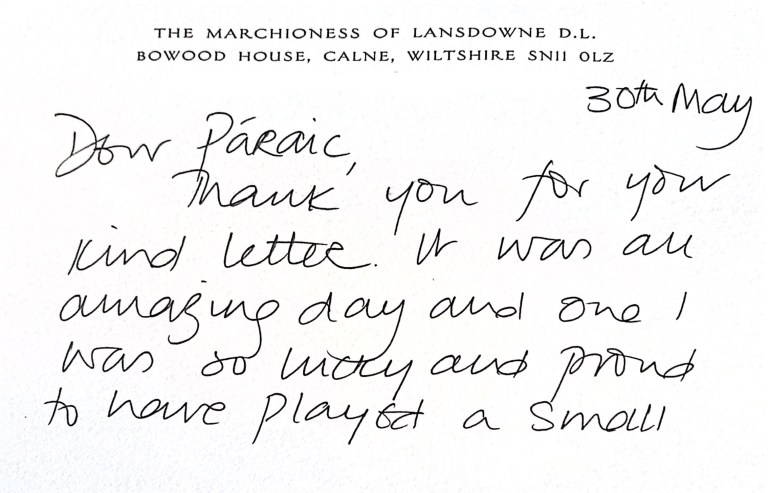 THE MARCHIONESS OF LANSDOWNE D.L.
BOWOOD HOUSE, CALNE, WILTSHIRE SN11 0LZ
30th May
Dear Páraic,
Thank you for your
kind letter. It was an
amazing day and one I
was so lucky and proud
to have played a small